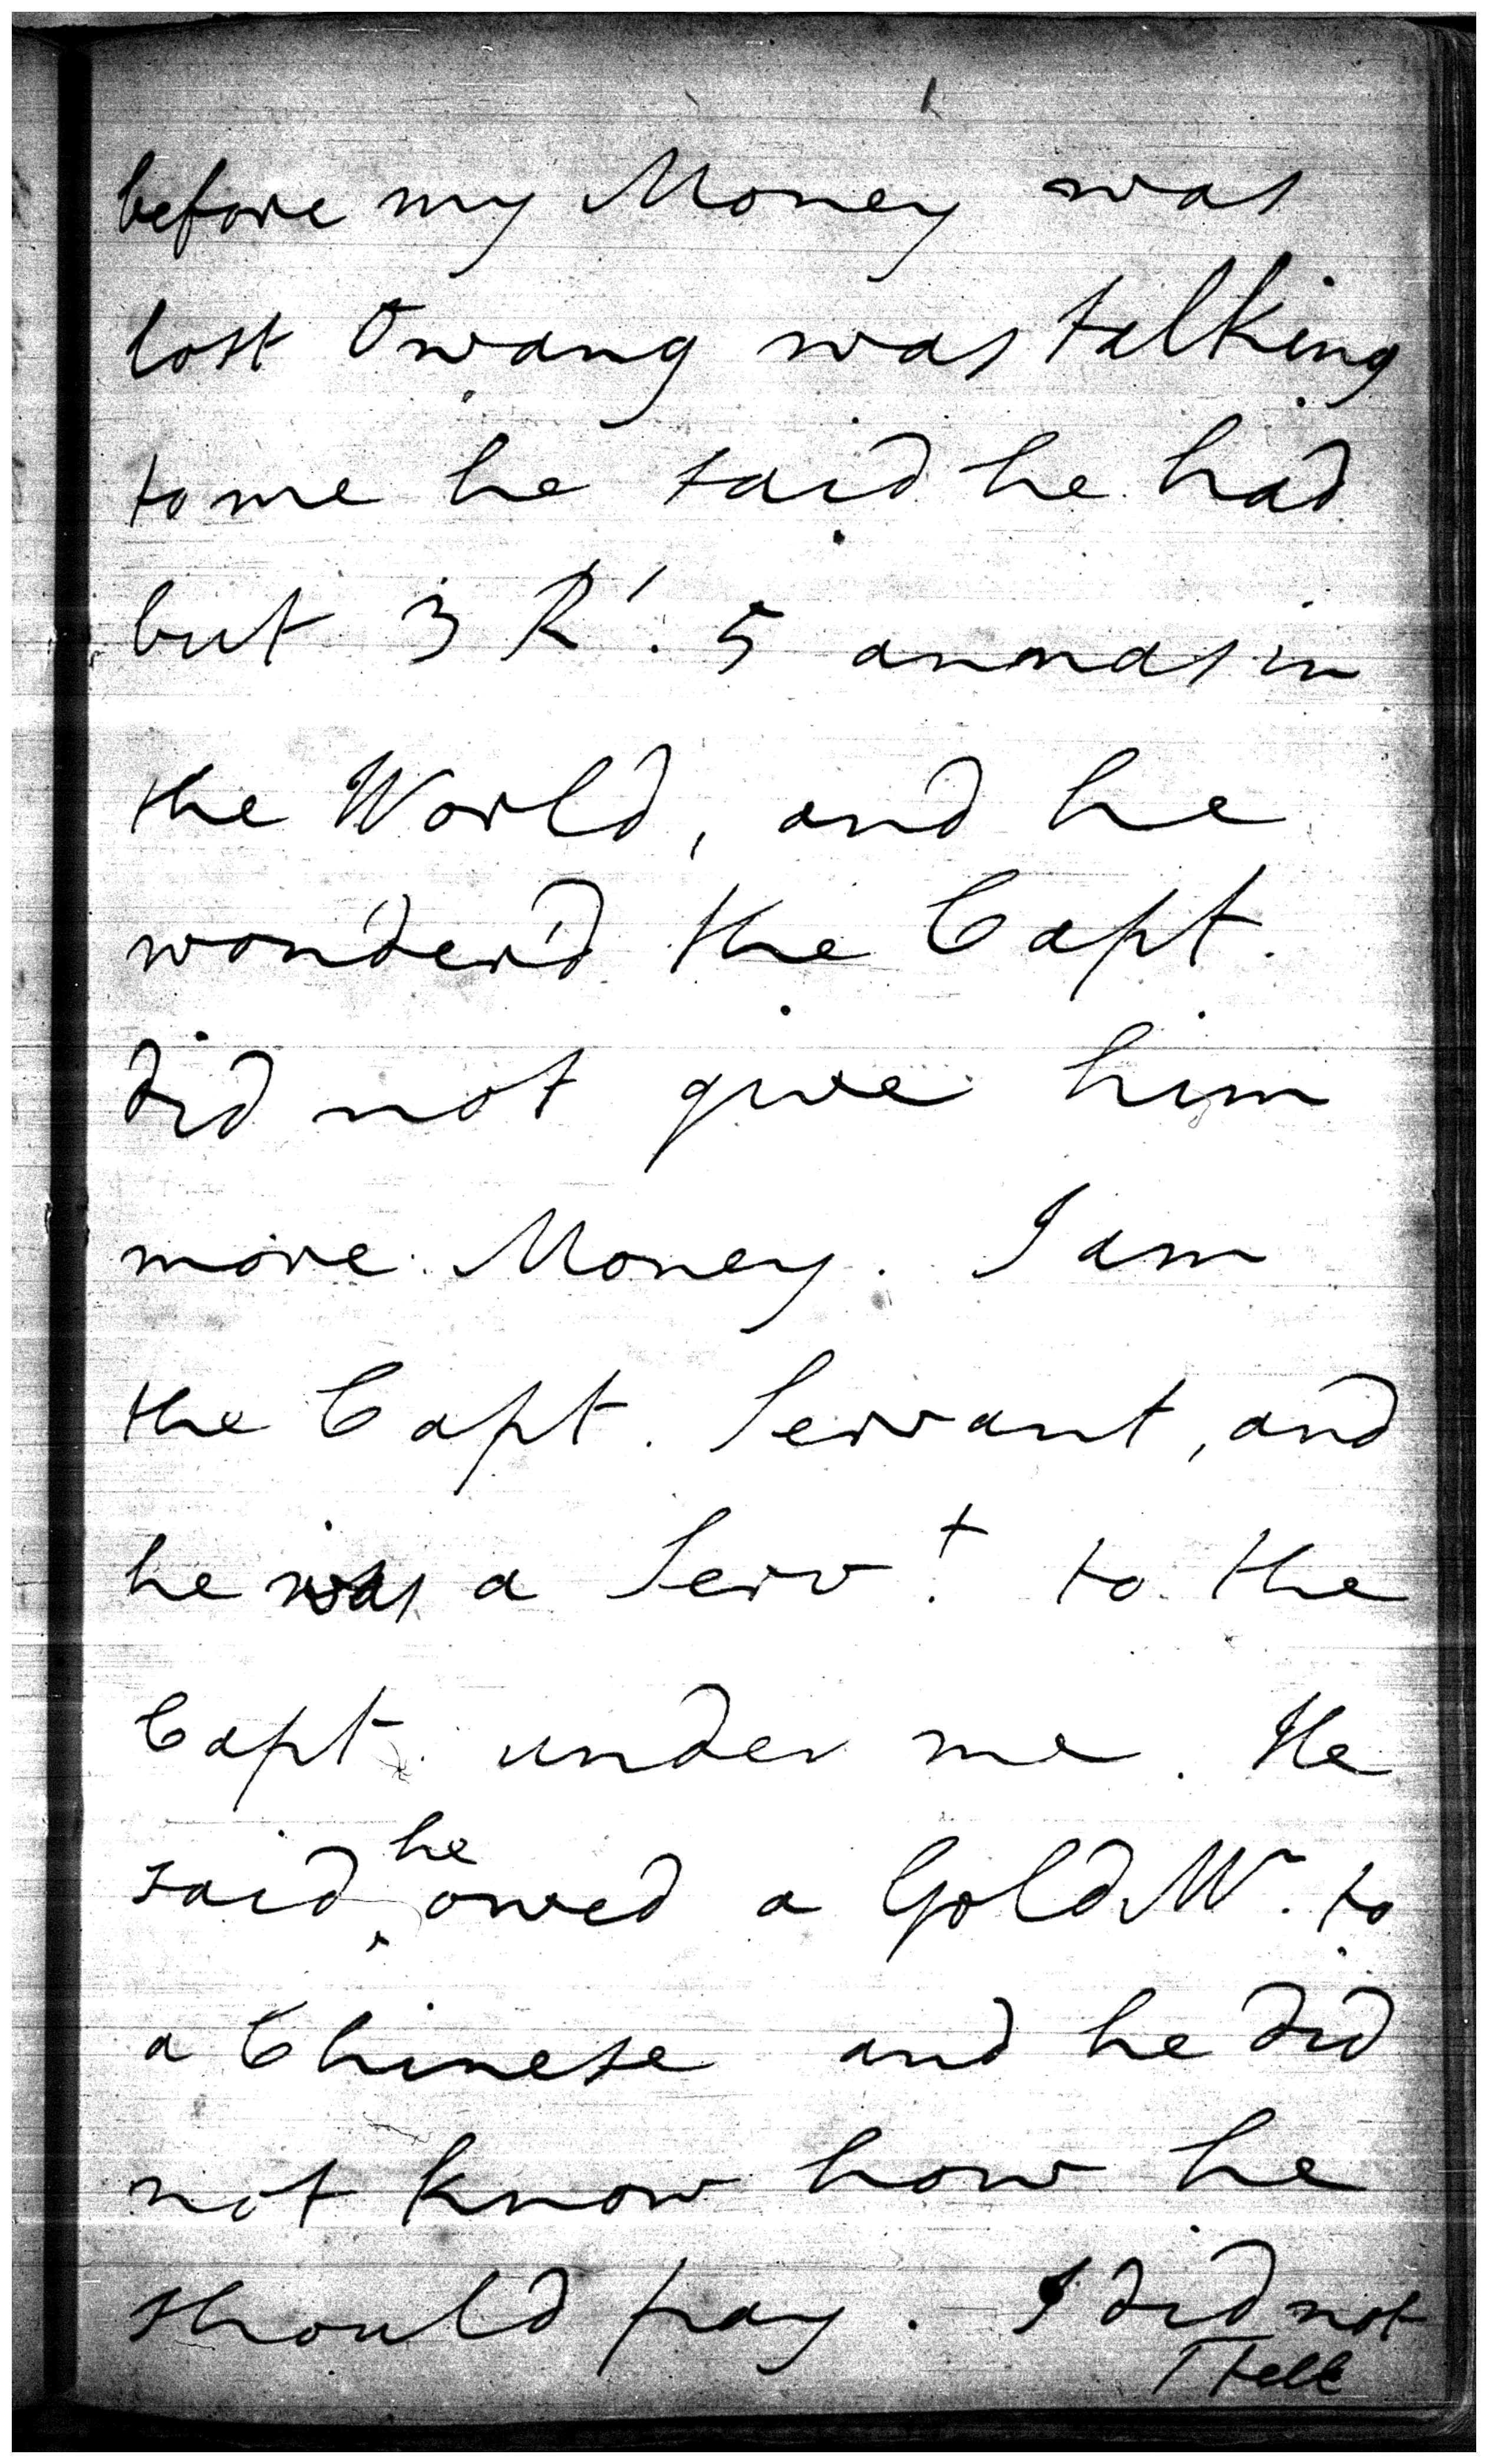 before my Money was
lost Owang was talking
to me he said he had
but 3 R<sup>s</sup>. 5 annas in
the World, and he
wonder'd the Capt.
did not give him
more Money. I am
the Capt. Servant, and
he was a Serv<sup>t</sup>. to the
Capt. under me. He
said he owed a Gold M<sup>r</sup>. to
a Chinese and he did
not know how he
should pay. I did not
tell